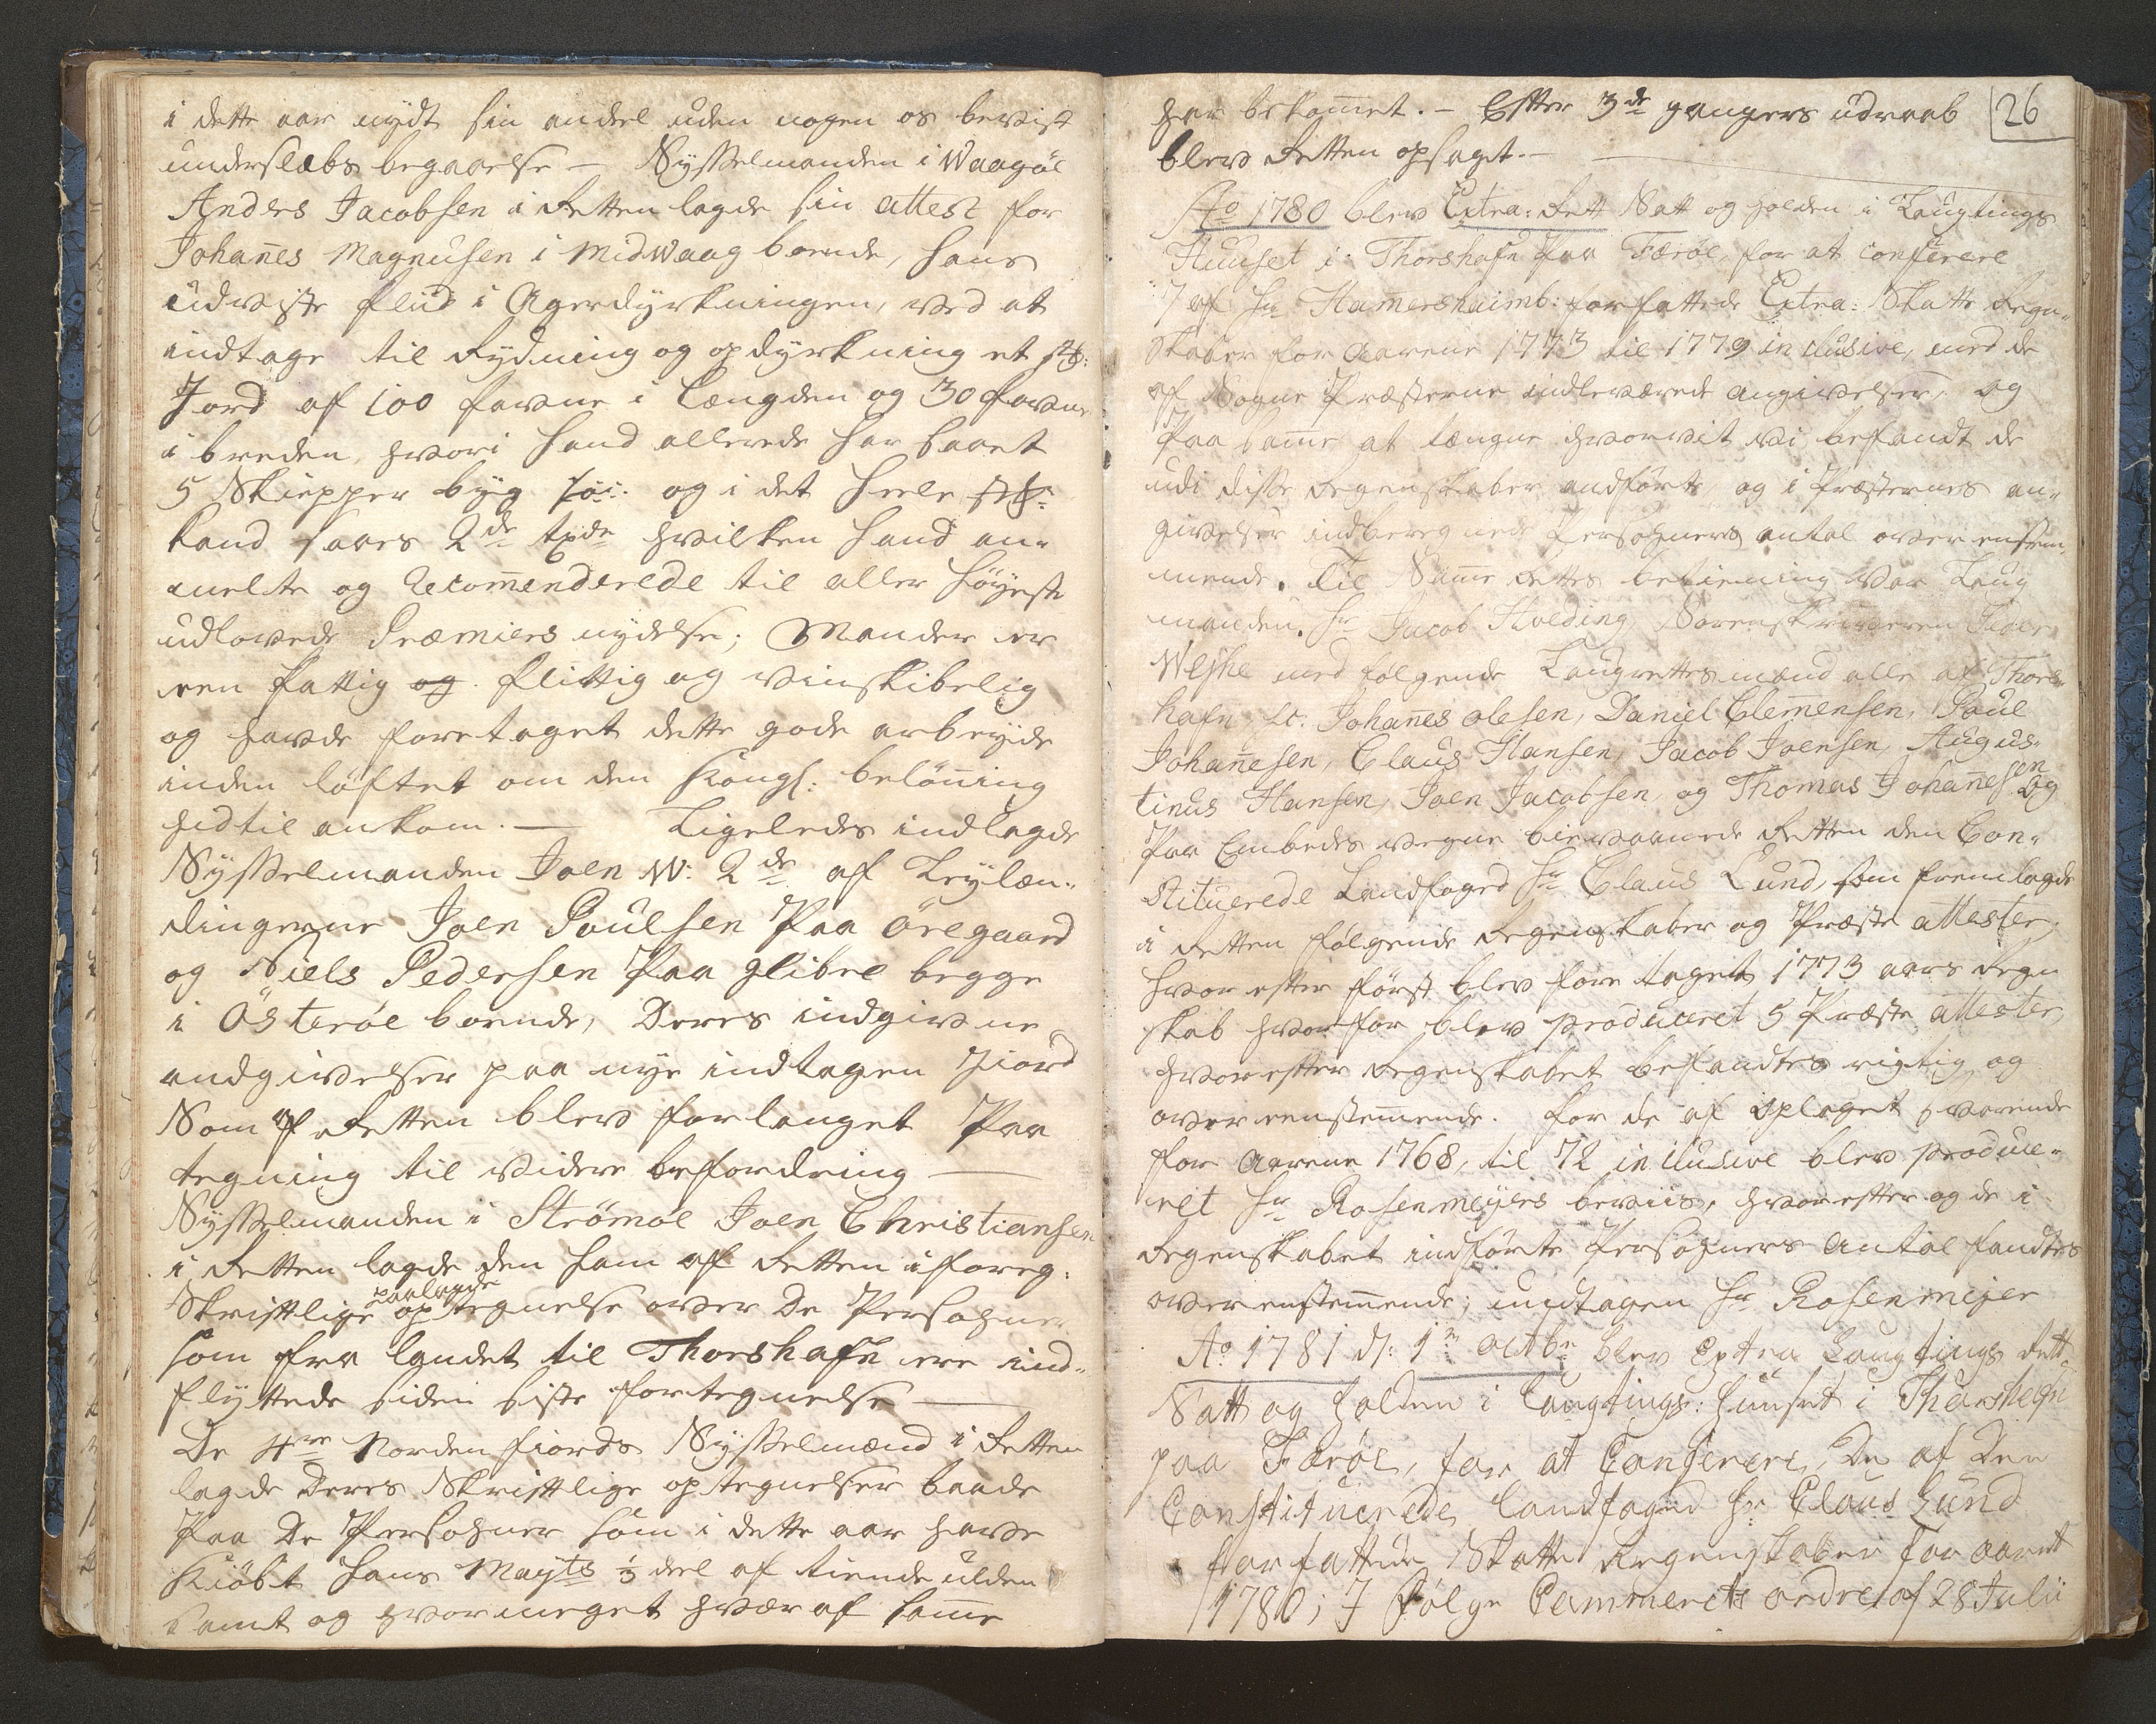 i dette aar nydt sin andel uden nogen os bevist
underslæbs begaaelse — Sysselmanden i Waagöe
Anders Jacobsen i Retten lagde sin attest for
Johañes Magnusen i Midwaag boende, hans
udviste fliid i Agerdyrkningen, ved at
indtage til Rydning og opdyrkning et st:
Jord af 100 favne i Længden og 30 favne
i breden, hvori hand allerede har saaet
5 Skiepper byg og i det heele st:
kand saaes 2de tdr hvilken hand an-
melte og Recom̃enderede til aller höyeste
udlovede Præmiers nydelse; Manden er
een fattig og flittig og vinskibelig
og havde foretaget dette gode arbeyde
inden löftet om den Kongl: belöñing
hidtil ankom. — Ligeledes indlagde
Sysselmanden Joen W: 2de af Leylæn-
dingerne Joen Poulsen Paa öregaard
og Niels Pedersen Paa glibre begge
i Österöe boende, Deres indgivne
andgivelser paa nye indtagen Jiord
Som af Retten blev forlanget Paa
tegning til videre befordring —
Sysselmanden i Strömöe Joen Christiansen
i Retten lagde den ham af Retten i foreg:
paalagde
Skriftlige optegnelse over De Persohner
som fra landet til Thorshafn ere ind-
flyttede siden siste fortegnelse —
De 4re Norden fiords Sysselmænd i Retten
lagde Deres Skriftlige optegnelser baade
Paa De Persohner som i dette aar have
Kiöbt Hans Mayts 1/3 deel af tiende ulden
samt og hvormeget hver af sam̃e
26
har bekom̃et. — Efter 3de ganges udraab
blev Retten ophaget. —
Ao 1780 blev Extra: Rett Satt og holden i Laugtings
Huuset i Thorshafn paa Færöe, for at conferere
7 af Hr Ham̃ershaimb: forfattede Extra: Skatte Regn-
skaber for Aarene 1773 til 1779 inclusive, med de
af Sogne Præsterne indleverede angivelser, og
Paa sam̃e at tegne hvorvit vi befandt de
udi disse Regenskaber andförte og i Præsternes an-
givelser indberegnede Persohners antal overensstem-
mende. Til Sam̃e Rettes betiening var Laug
manden Hr Jacob Hveding Sorenskriveren Iver
Weyhe med fölgende Laugrettesmænd alle af Thors-
hafn, sc: Johañes Olesen, Daniel Clem̃ensen, Poul
Johañesen, Claus Hansen, Jacob Joensen, Augus-
tinus Hansen, Joen Jacobsen, og Thomas Johañesen Og
Paa Embeds vegne bievaanede Retten den Con-
stituerede Landfoged Hr Claus Lund, som fremlagde
i Retten fölgende Regenskaber og Præste attester,
hvorefter först blev foretaget 1773 aars Regn
skab hvorfor blev produceret 5 Præste attester,
hvorefter Regenskabet befandtes rigtig og
overeenstem̃ende. for de af oplaget svarende
for Aarene 1768, til 72 inclusive blev produce-
ret Hr Rosenmeyers beviis, hvorefter og de i
Regenskabet indförte Persohners Antal fandtes
overenstem̃ende; undtagen Hr Rosenmejer
Ao 1781 d: 1n octbr blev Extra Laugtings Rett
Satt og holden i Laugtings: Huuset i Thorshafn
paa Færöe, for at Conferere, De af Den
Constituerede Landfoged Hr Claus Lund
forfattede Skatte Regenskaber for aaret
1780; I fölge Cammerets ordre af 28 Julii